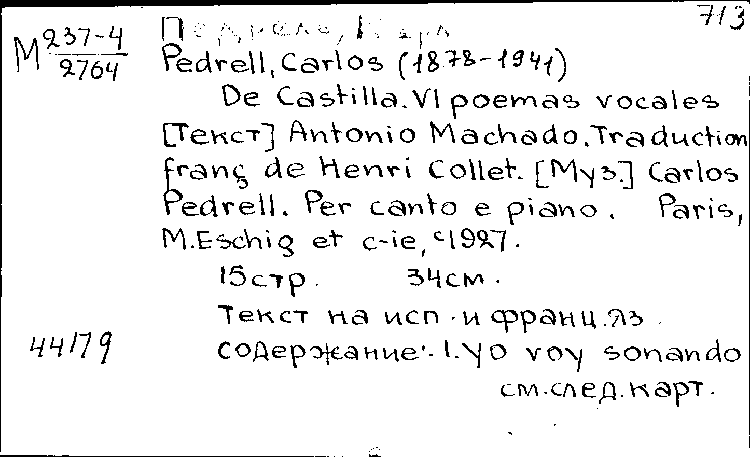 713
М 237-4
2764
Pedrell, Carlos (1878-1941)
De Castilla. VI poemas vocales
[Текст] Antonio Machado. Traduction
franç de Henri Collet. [Муз.] Carlos
Pedrell. Per canto e piano. Paris,
M. Eschig et c-ie, c1927.
15 стр. 34 см.
Текст на исп. и франц. яз.
44179
содержание: 1. Yo voy sonando
см. след. карт.